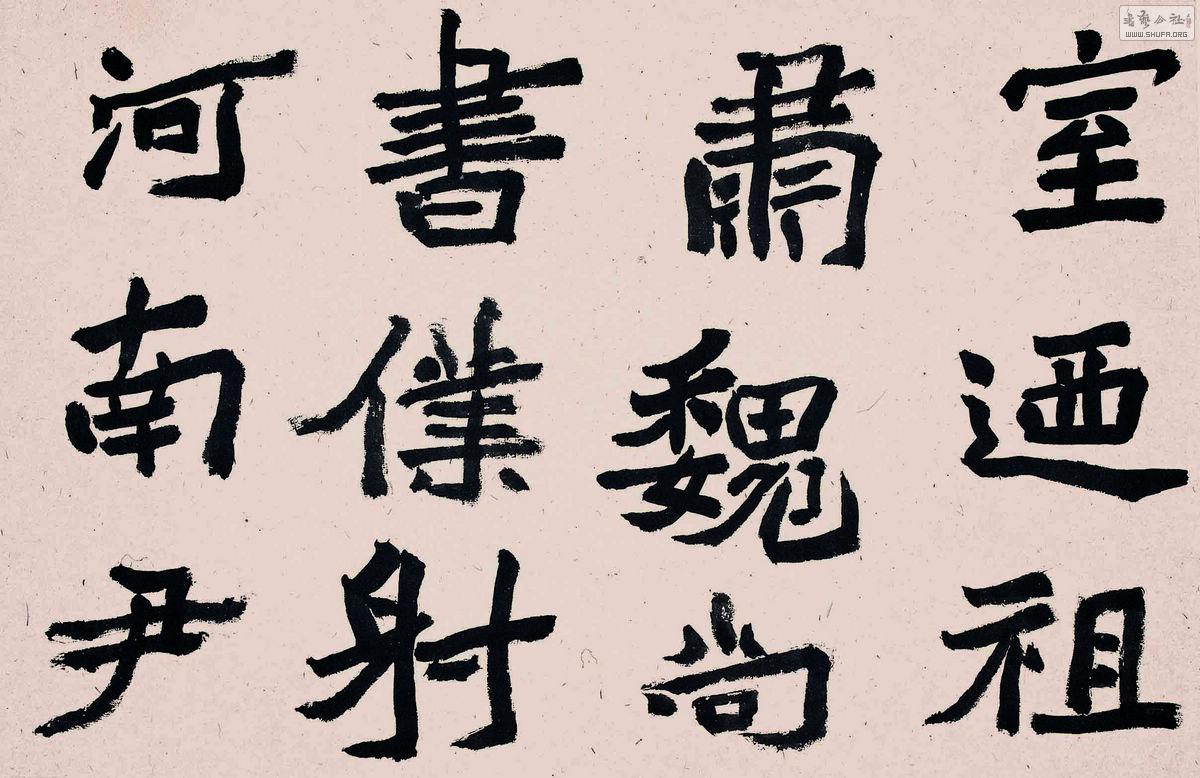 室迺祖
肅魏尚
書僕射
河南尹
書藝公社
WWW.SHUFA.ORG